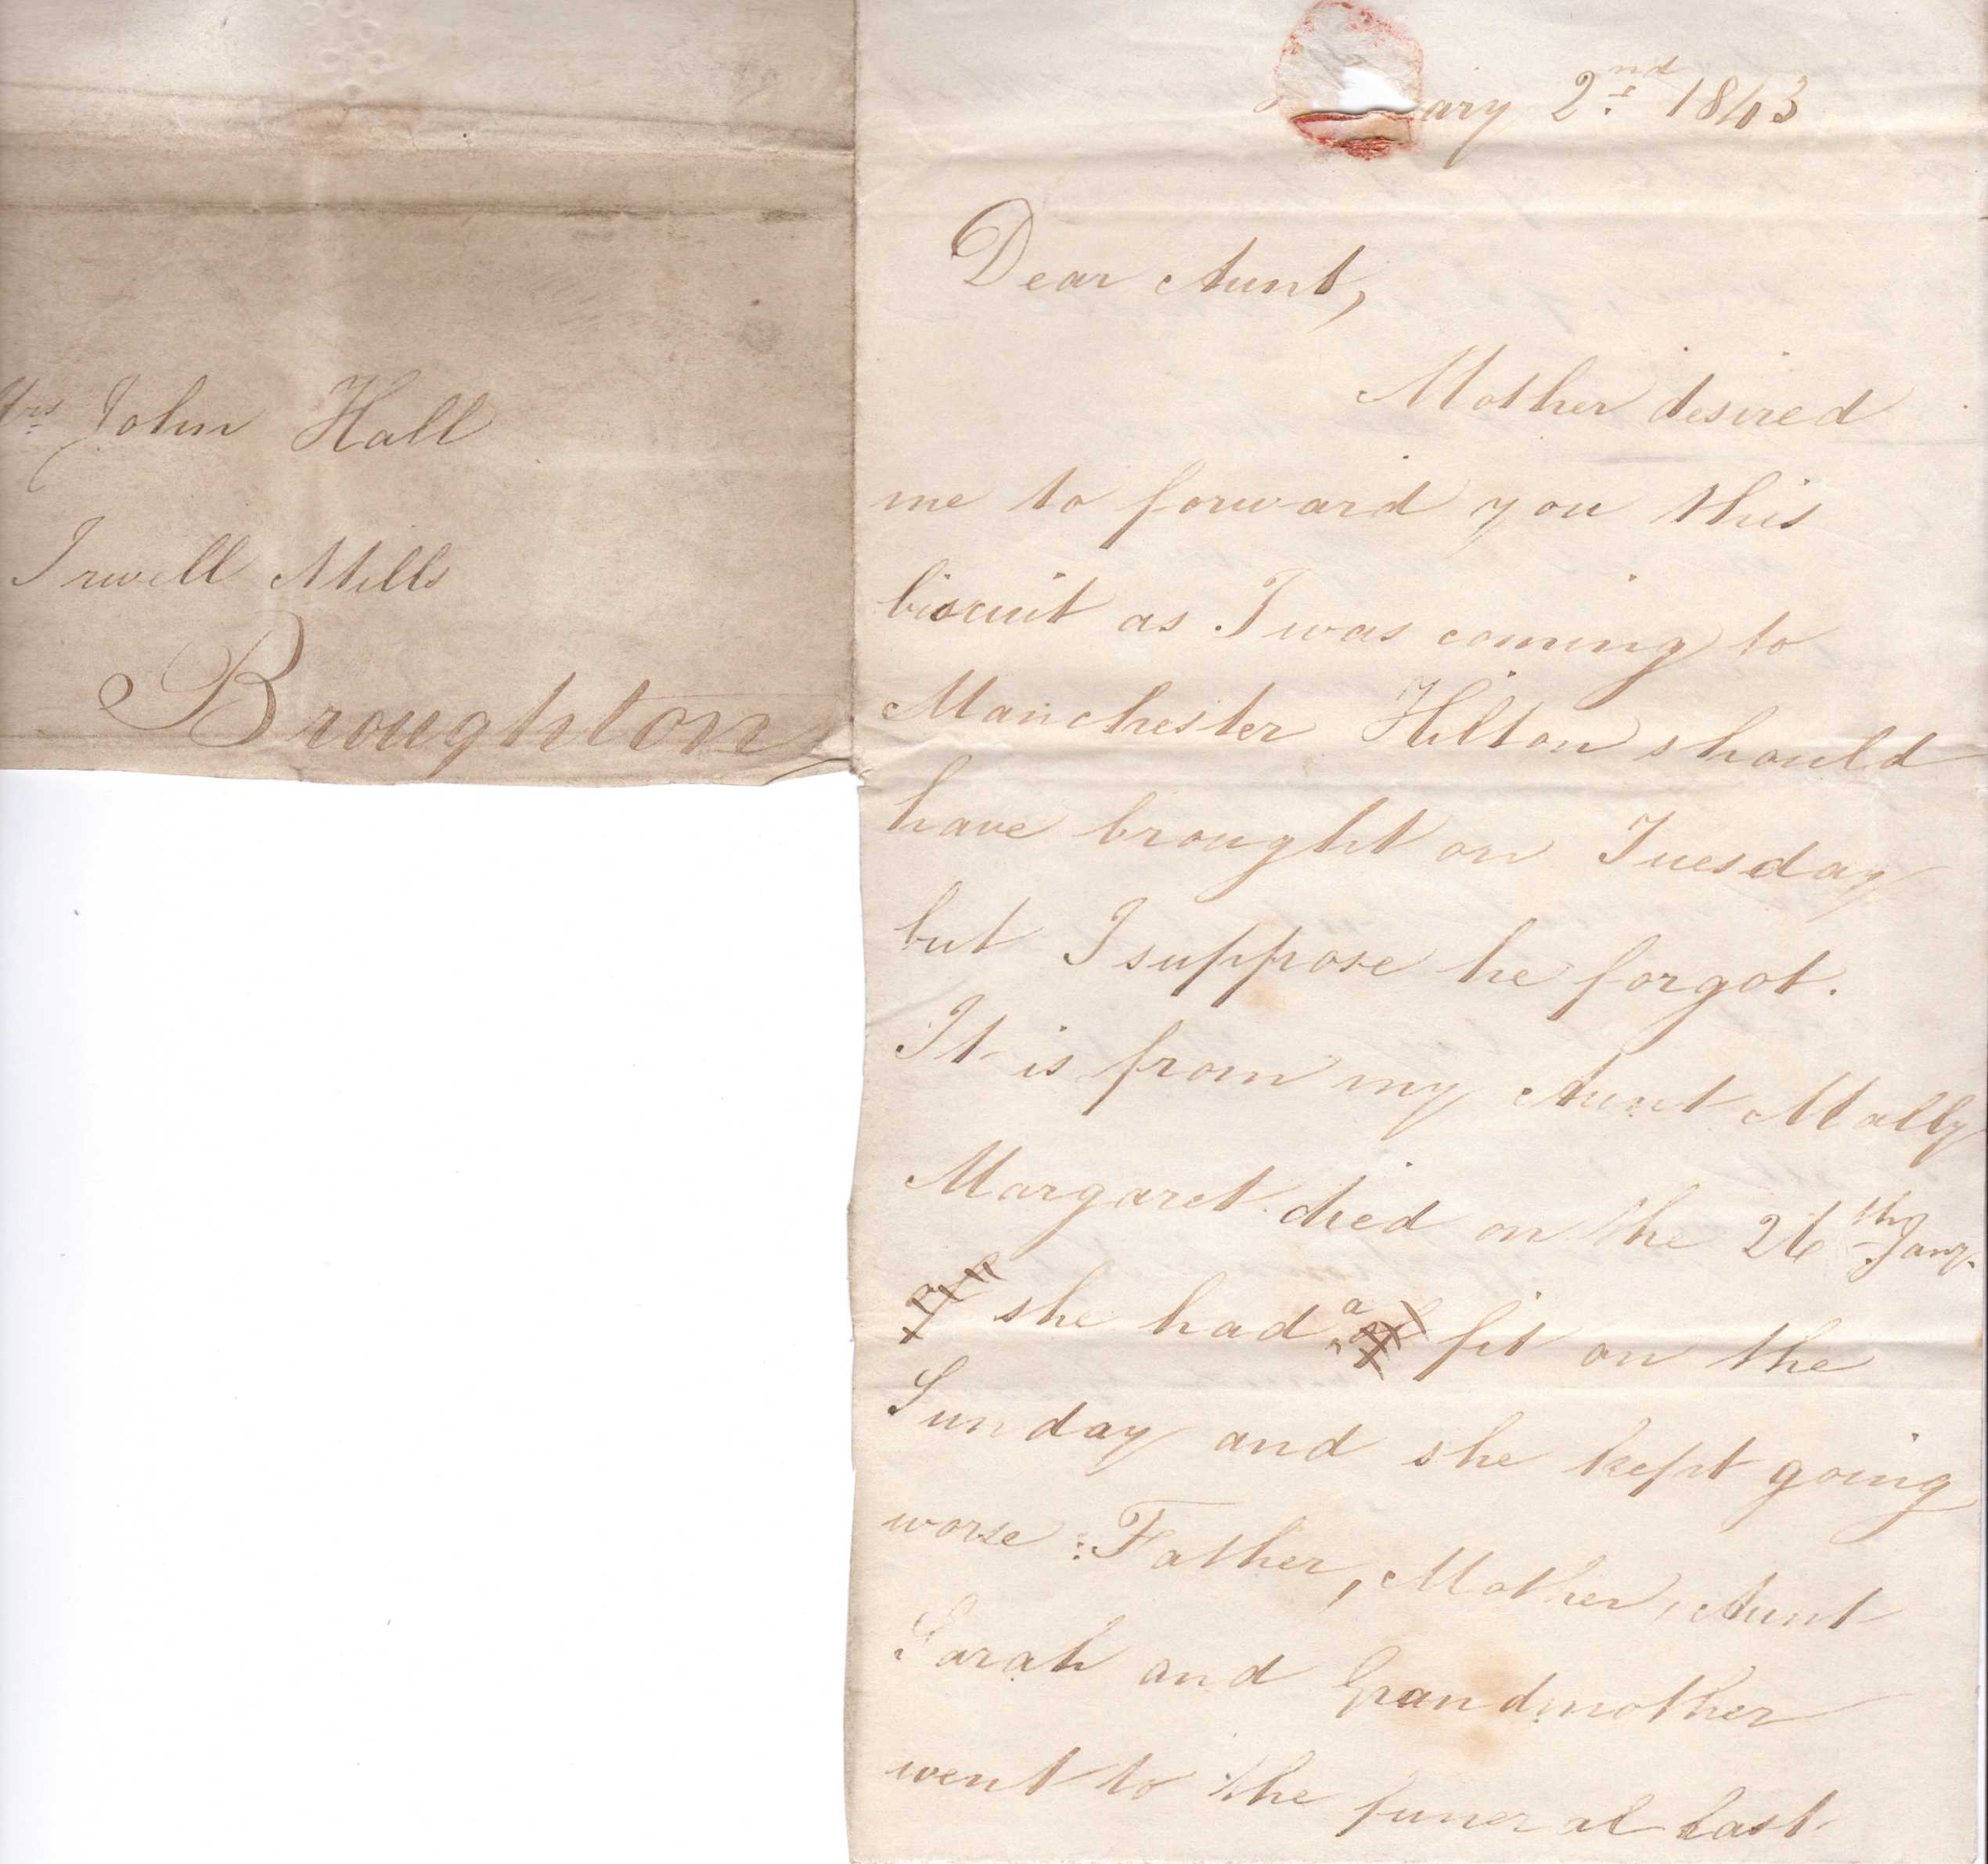 Mrs John Hall
Irwell Mills
Broughton
ary 2nd 1843
Dear Aunt,
Mother desired
me to forward you this
biscuit as I was coming to
Manchester Hilton should
have brought on Tuesday
but I suppose he forgot.
It is from my Aunt Mally
Margaret died on the 26th Jany.
she had a fit on the
Sunday and she kept going
worse: Father, Mother, Aunt
Sarah and Grandmother
went to the funeral last